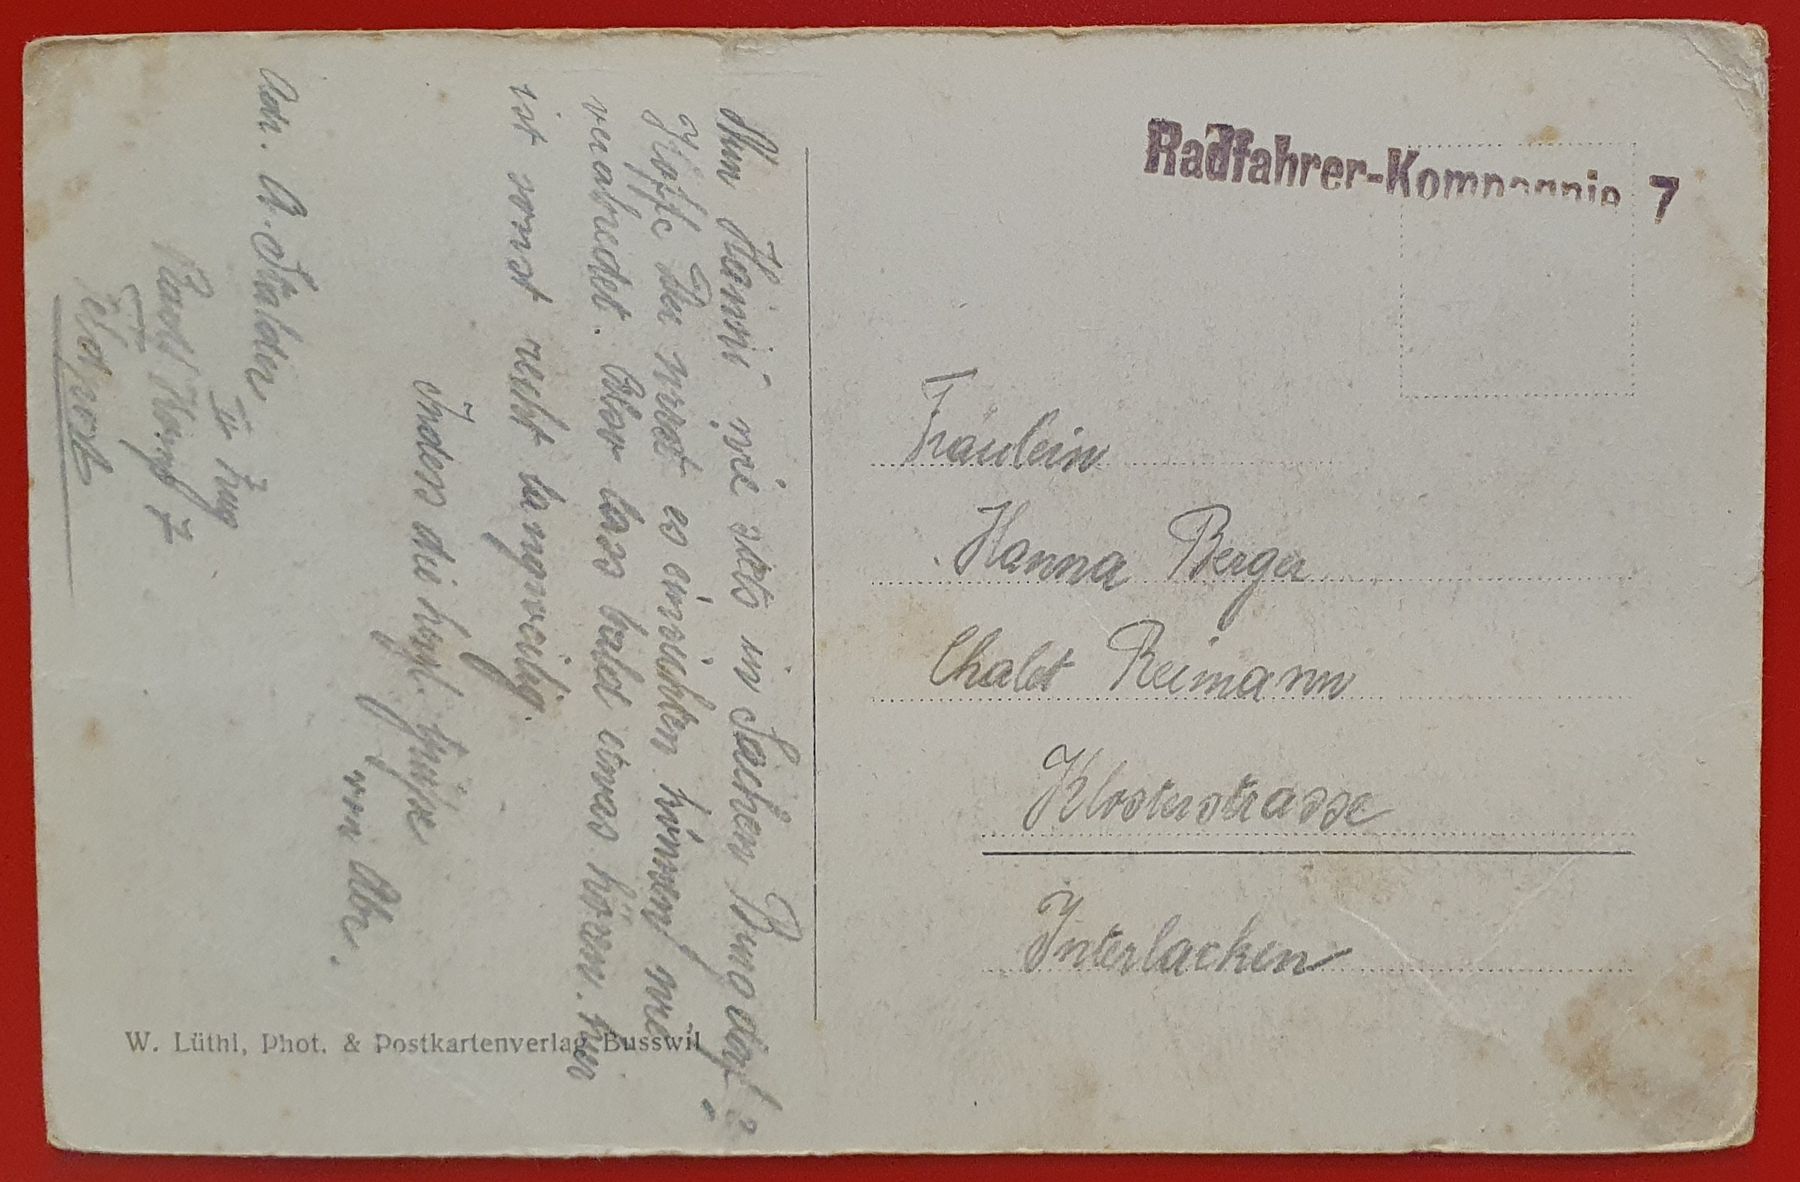 Radfahrer-Kompagnie 7
Fräulein
Hanna Berger
Chalet Reimann
Klosterstrasse
Interlacken
Nun Hanni wie stets in Sachen Burgdorf?
Hoffe Du wirst es einrichten können wie
verabredet. Aber lass bald etwas hören. hier
ist sonst recht langweilig.
Indess die herzl. Grüsse
von Abr.
Adr. A. Stalder
II Zug
Radf Komp 7
Feldpost
W. Lüthi, Phot. & Postkartenverlag Busswil